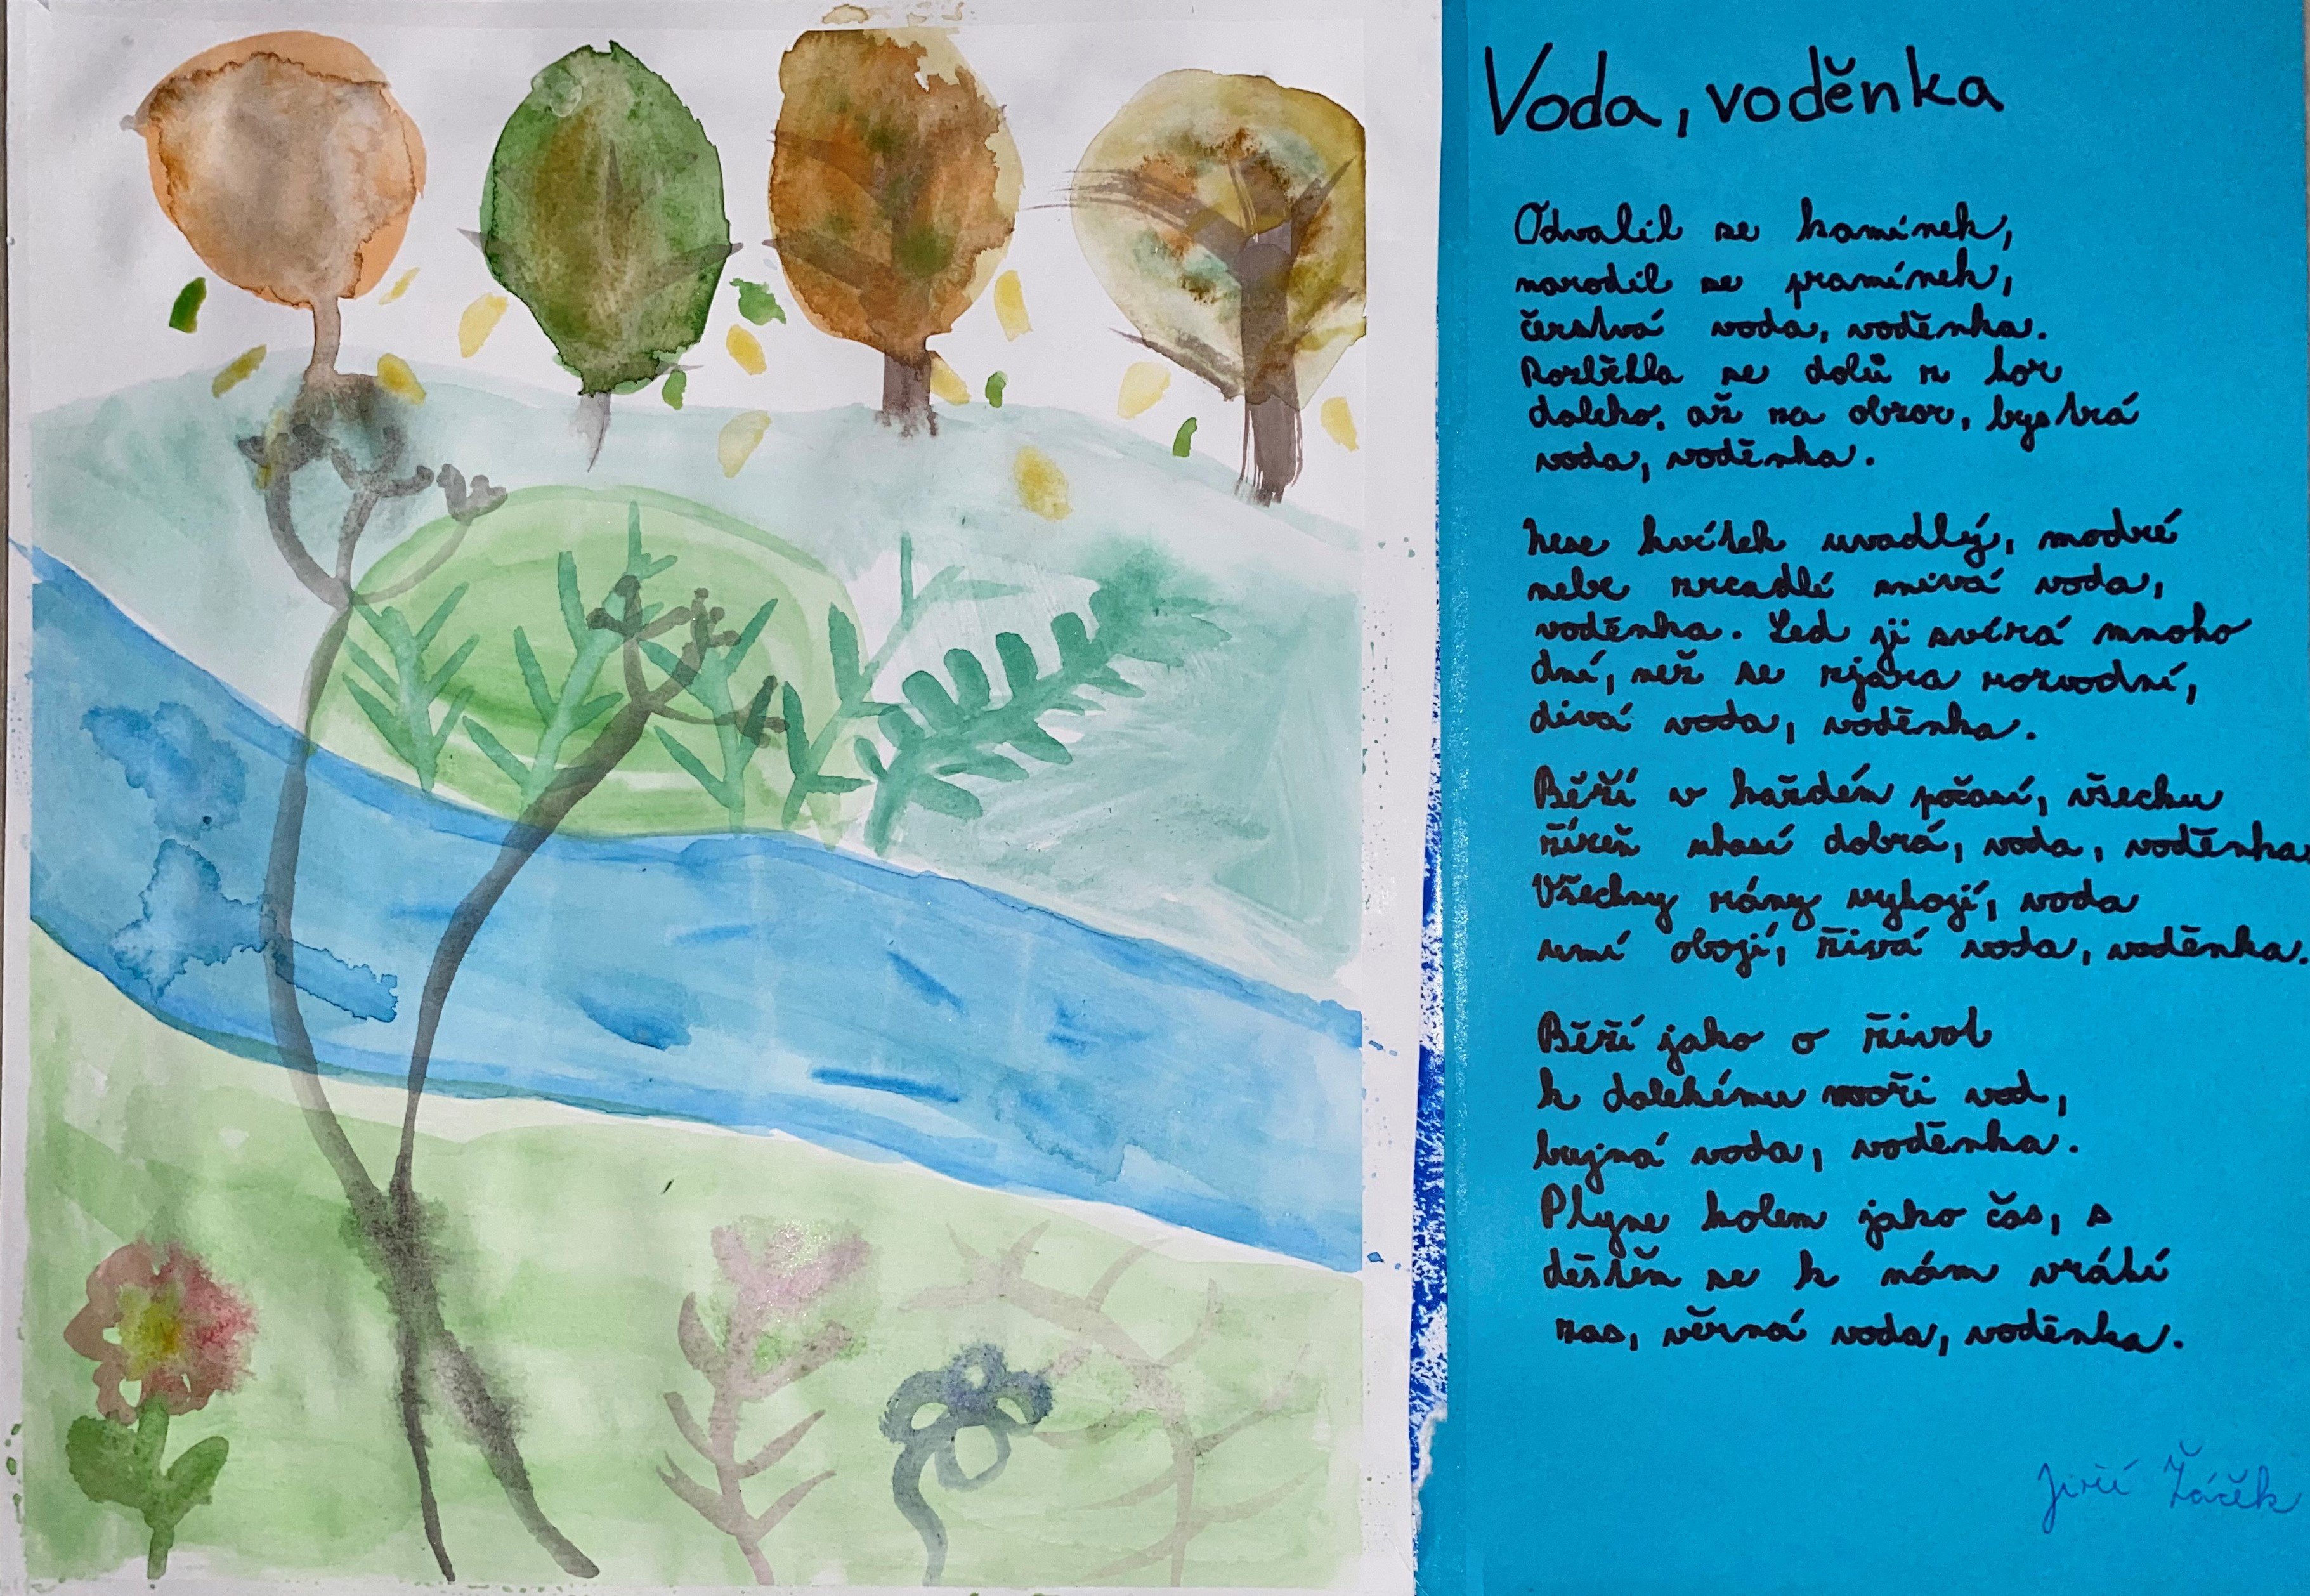 Voda, voděnka
Odvalil se kamínek,
narodil se pramínek,
čerstvá voda, voděnka.
Rozběhla se dolů z hor
daleko, až na obzor, bystrá
voda, voděnka.
Nese kvítek uvadlý, modré
nebe zrcadlí snivá voda,
voděnka. Led ji svírá mnoho
dní, než se zjara rozvodní,
divá voda, voděnka.
Běží v každém počasí, všecku
žízeň uhasí dobrá, voda, voděnka
Všechny rány vyhojí, voda
umí obojí, živá voda, voděnka.
Běží jako o život
k dalekému moři vod,
bujná voda, voděnka.
Plyne kolem jako čas, s
deštěm se k nám vrátí
zas, věrná voda, voděnka.
Jiří Žáček